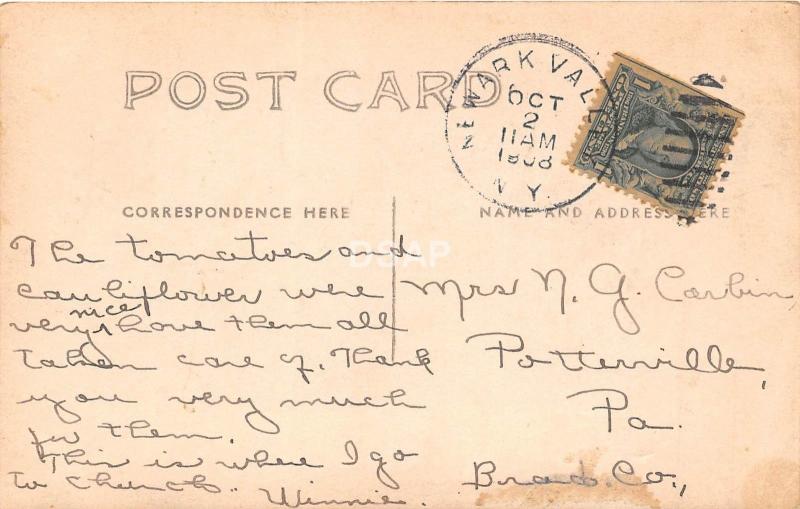 POST CARD
NEWARK VAL
OCT
2
11AM
1908
N.Y.
CORRESPONDENCE HERE
NAME AND ADDRESS HERE
DSAP
The tomatoes and
cauliflower were
very nice, have them all
taken care of. Thank
you very much
for them.
This is where I go
to church. Winnie.
Mrs N. G. Corbin
Potterville,
Pa.
Brad. Co.,